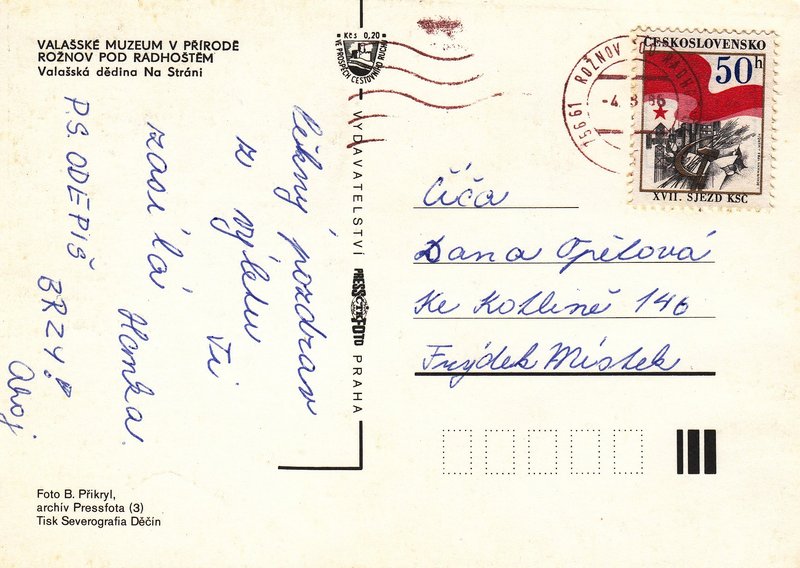 VALAŠSKÉ MUZEUM V PŘÍRODĚ
ROŽNOV POD RADHOŠTĚM
Valašská dědina Na Stráni
Pěkný pozdrav
z výletu Ti
zasílá Honka.
P.S. ODEPIŠ BRZY!
Ahoj
Foto B. Přikryl,
archív Pressfota (3)
Tisk Severografia Děčín
Kčs 0,20
VE PROSPĚCH CESTOVNÍHO RUCHU
VYDAVATELSTVÍ PRESSFOTO PRAHA
ČTK
756 61 ROŽNOV POD RADH
-4. 8. 86
ČESKOSLOVENSKO
50h
XVII. SJEZD KSČ
Číča
Dana Opělová
Ke Kotlině 146
Frýdek Místek